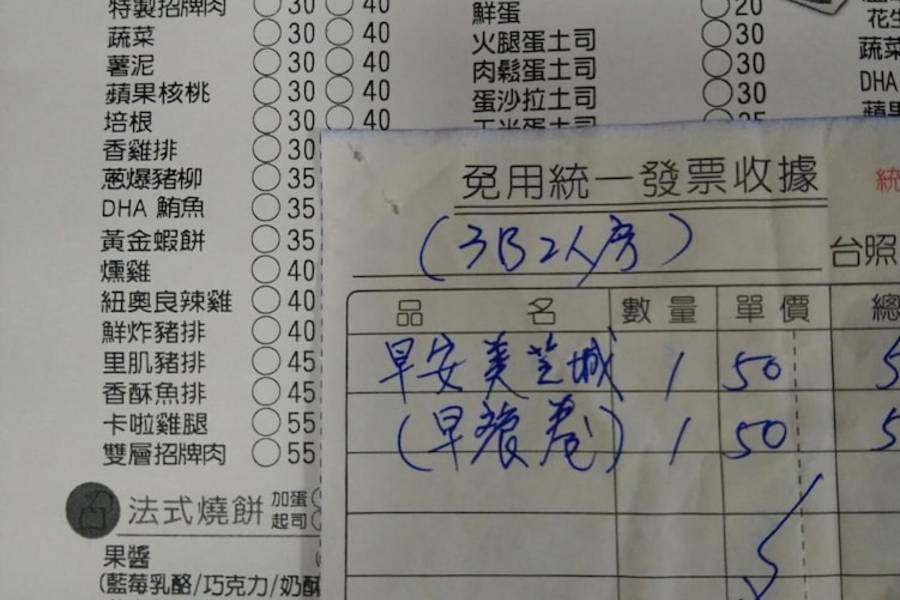 特製招牌肉 30 40
蔬菜 30 40
薯泥 30 40
蘋果核桃 30 40
培根 30 40
香雞排 30
蔥爆豬柳 35
DHA 鮪魚 35
黃金蝦餅 35
燻雞 40
紐奧良辣雞 40
鮮炸豬排 40
里肌豬排 45
香酥魚排 45
卡啦雞腿 55
雙層招牌肉 55
法式燒餅 加蛋
起司
果醬
(藍莓乳酪/巧克力/奶酥
鮮蛋 20
火腿蛋土司 30
肉鬆蛋土司 30
蛋沙拉土司 30
玉米蛋土司 35
花生
蔬菜
DHA
蘋果
免用統一發票收據
統
(3B2人房)
台照
品名 數量 單價 總
早安美芝城 1 50 5
(早餐卷) 1 50 5